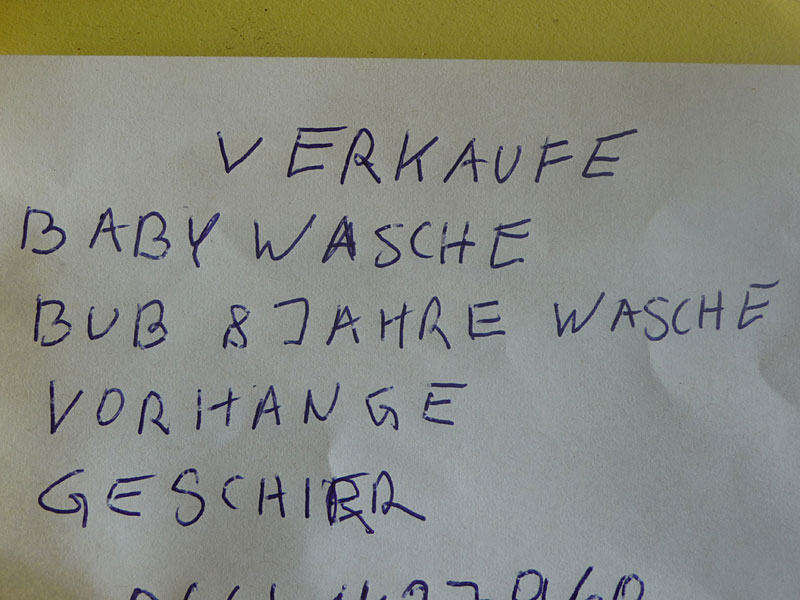 VERKAUFE
BABY WASCHE
BUB 8 JAHRE WASCHE
VORHANGE
GESCHIRR